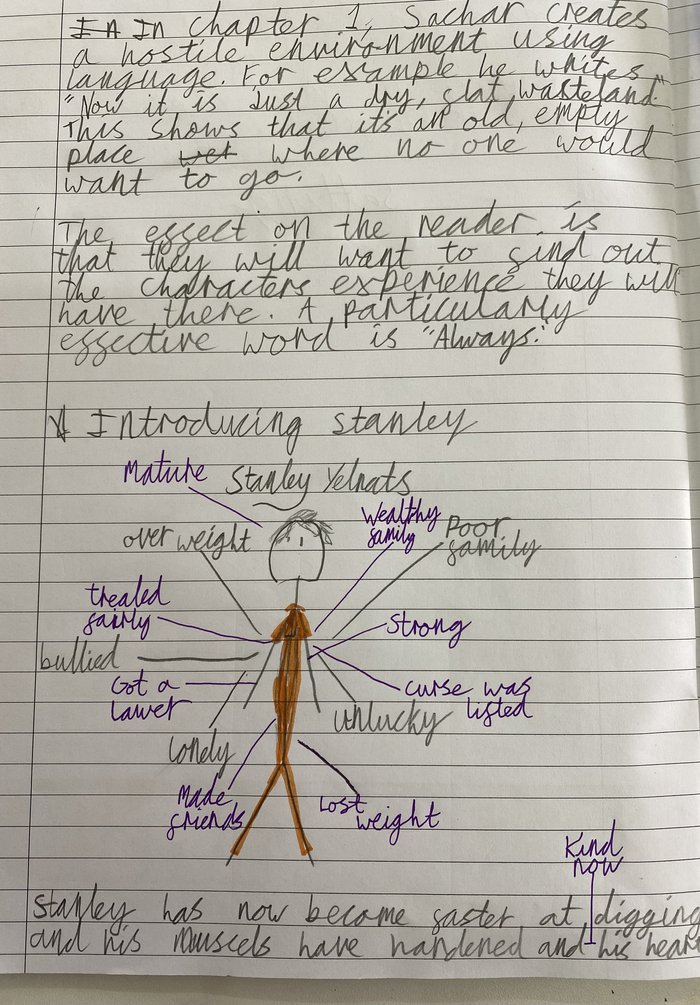 In In chapter 1, Sachar creates
a hostile environment using
language. For example he writes,
"Now it is just a dry, flat wasteland."
This shows that it's an old, empty
place wer where no one would
want to go.
The effect on the reader is
that they will want to find out
the characters experience they will
have there. A particularly
effective word is "Always."
Introducing Stanley
Mature
Stanley Yelnats
over weight
Wealthy
family
Poor
family
treated
fairly
Strong
bullied
Got a
Lawer
curse was
lifted
Lonely
Unlucky
Made
friends
Lost
weight
Kind
now
Stanley has now become faster at digging
and his Muscels have hardened and his hear